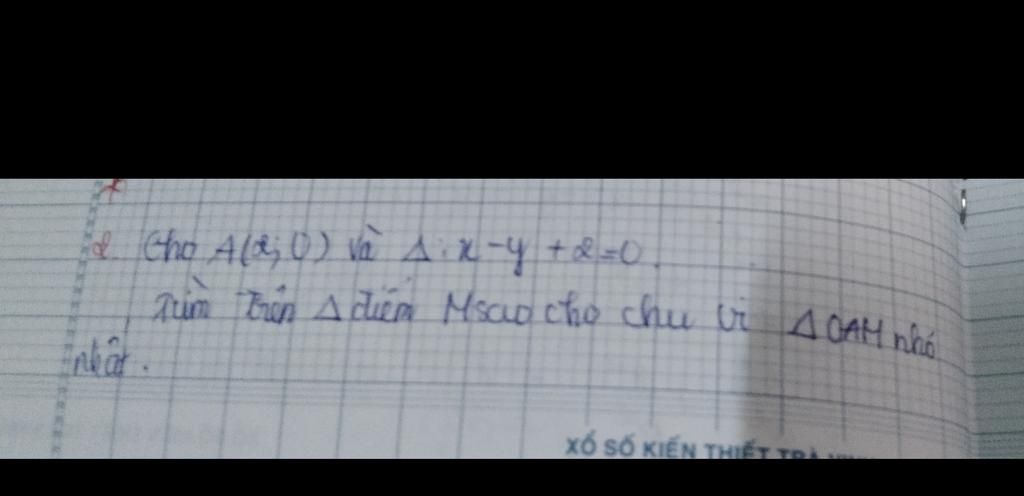 2. Cho A(2; 0) và Δ: x - y + 2 = 0.
Tìm trên Δ điểm M sao cho chu vi Δ OAM nhỏ
nhất.
XỔ SỐ KIẾN THIẾT TRÀ VINH